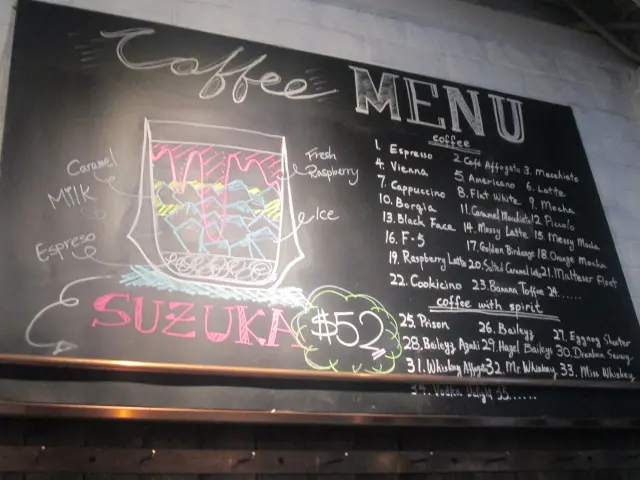 Coffee MENU
coffee
1. Espresso 2. Café Affogato 3. Macchiato
4. Vienna 5. Americano 6. Latte
7. Cappuccino 8. Flat White 9. Mocha
10. Borgia 11. Caramel Macchiato 12 Piccolo
13. Black Face 14. Messy Latte 15. Messy Mocha
16. F-5 17. Golden Birdcage 18. Orange Mocha
19. Raspberry Latte 20. Salted Caramel Latte 21. Malteser Float
22. Cookicino 23. Banana Toffee 24......
coffee with spirit
25. Prison 26. Baileyz 27. Eggnog Shorter
28. Baileyz Azuki 29. Hazel Baileys 30.
31. Whiskey Affogato 32. Mr Whiskey 33. Miss Whiskey
34. Vodka Delight 35......
Caramel
Milk
Espreso
Fresh
Raspberry
Ice
SUZUKA $52